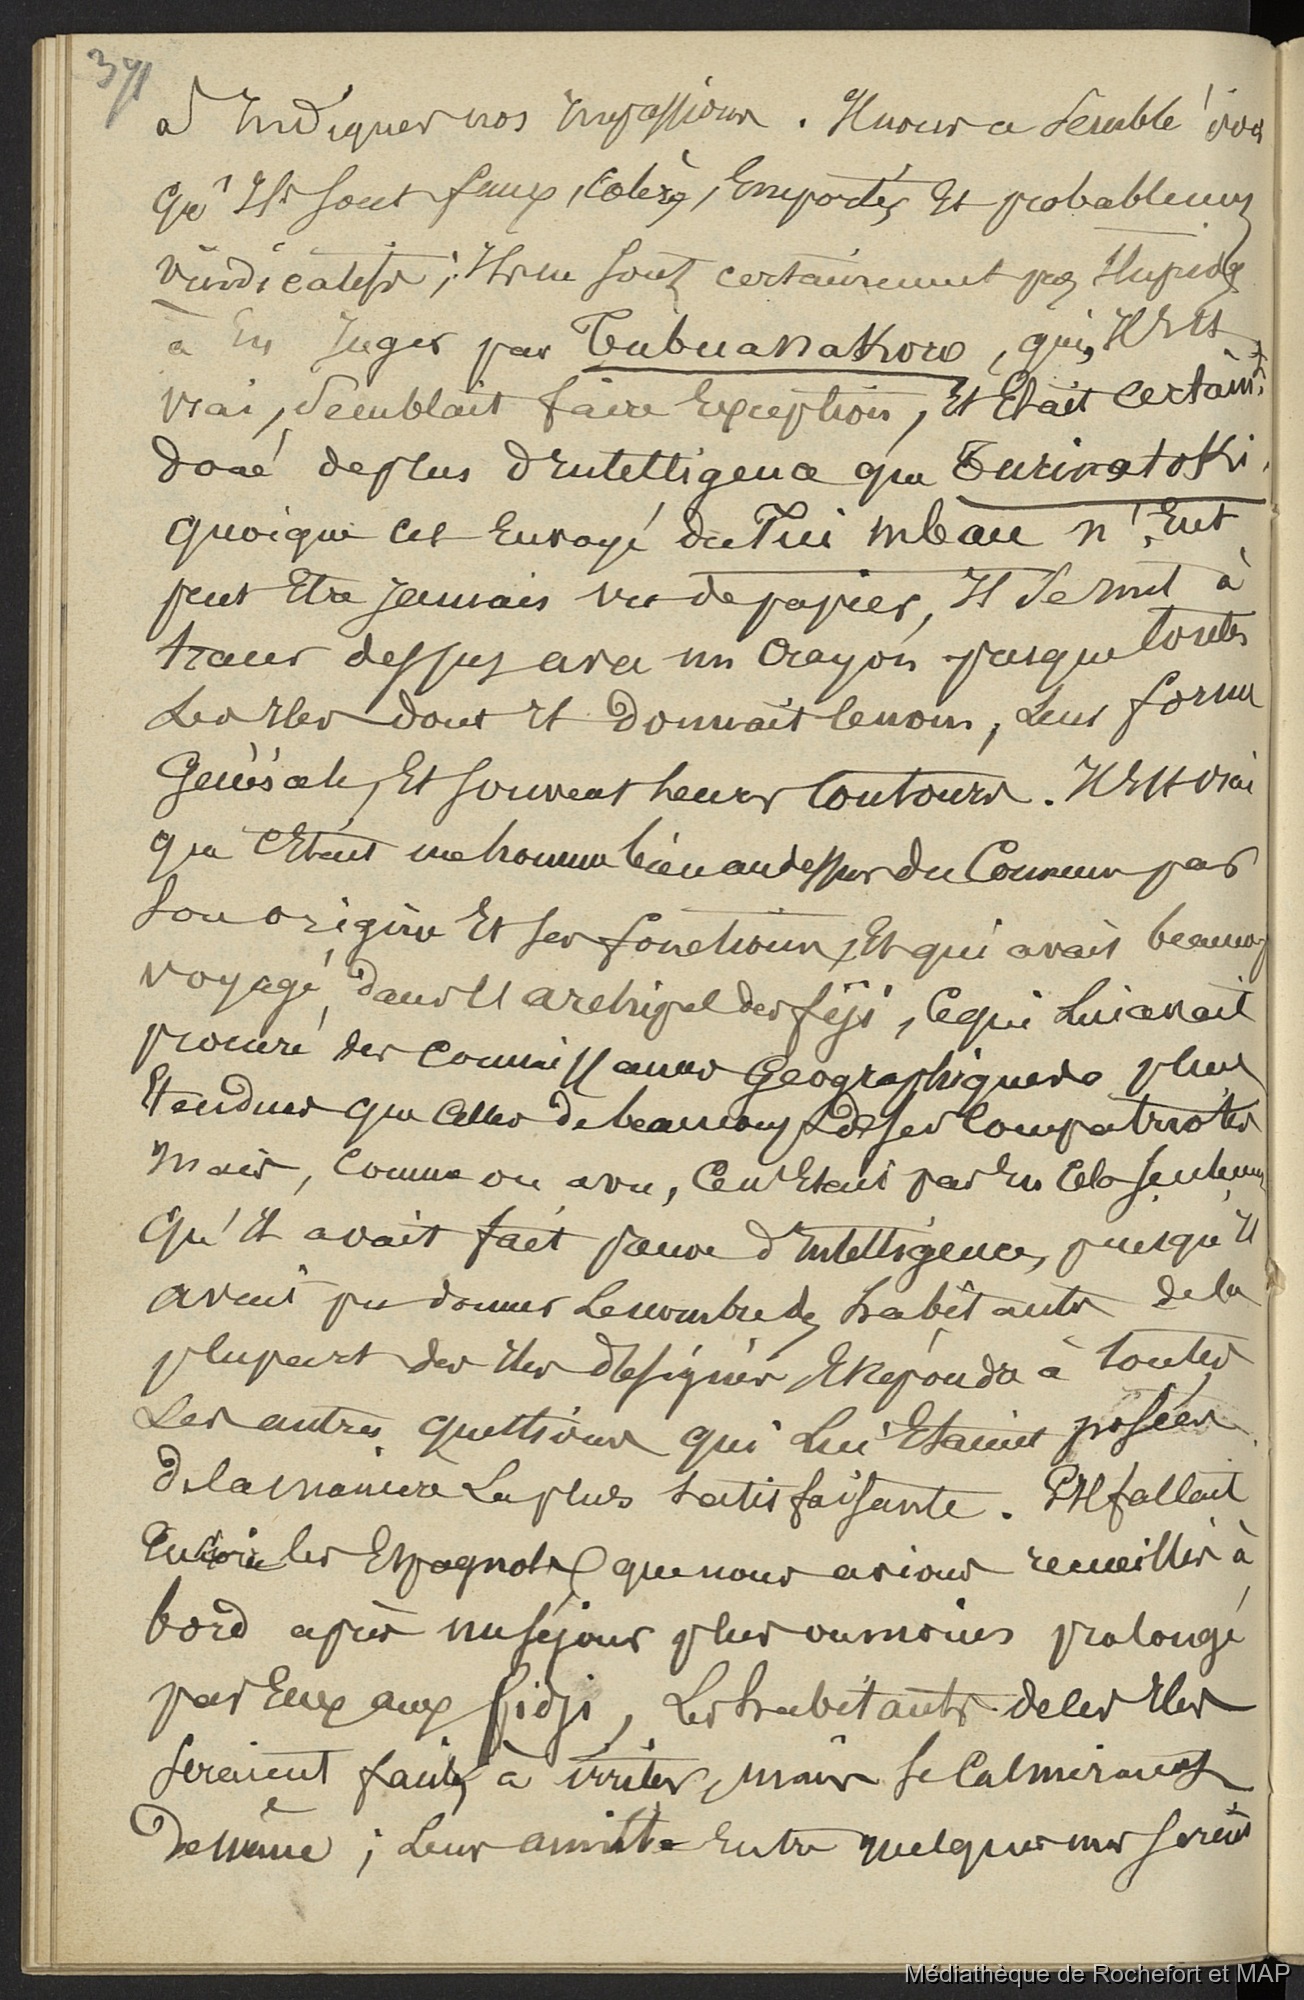 371
à Indiquer nos Impressions. Il nous a semblé
qu'Ils sont faux, colères, Emportés Et probablement
vindicatifs; Ils ne sont certainement pas stupides
à En Juger par Tubuanakoro, qui, Il Est
vrai, semblait faire Exception, Et Etait certaint
doué de plus d'Intelligence que Turinatoki
quoique cet Envoyé du Tui mbau n'Eut
peut Etre Jamais vu de papier, Il se mit à
tracer dessus avec un Crayon presque toutes
Les Iles dont Il donnait le nom, Leur forme
Générale, Et souvent Leurs Contours. Il Est vrai
que C'Etait un homme bien au dessus du Commun par
Son origine Et ses fonctions, Et qui avait beaucoup
voyagé dans l'archipel des fiji, Ce qui Lui avait
procuré des Connaissances Geographiques plus
Etendues que Celles de beaucoup de ses Compatriotes
Mais, Comme on a vu, Ce n'Etait pas En Cela seulement
qu'Il avait fait preuve d'Intelligence, puisqu'Il
avait pu donner Le nombre des habitants de la
plupart des Iles désignées, Et Répondre à toutes
Les autres questions qui Lui Etaient posées
de la manière La plus satisfaisante. S'Il fallait
En croire les Espagnols que nous avions recueillis à
bord après un séjour plus ou moins prolongé
par Eux aux fidji, Les habitants de ces Iles
seraient faciles à irriter, mais se Calmeraient
de même; Leur amitié Entre quelques uns serait
Médiathèque de Rochefort et MAP